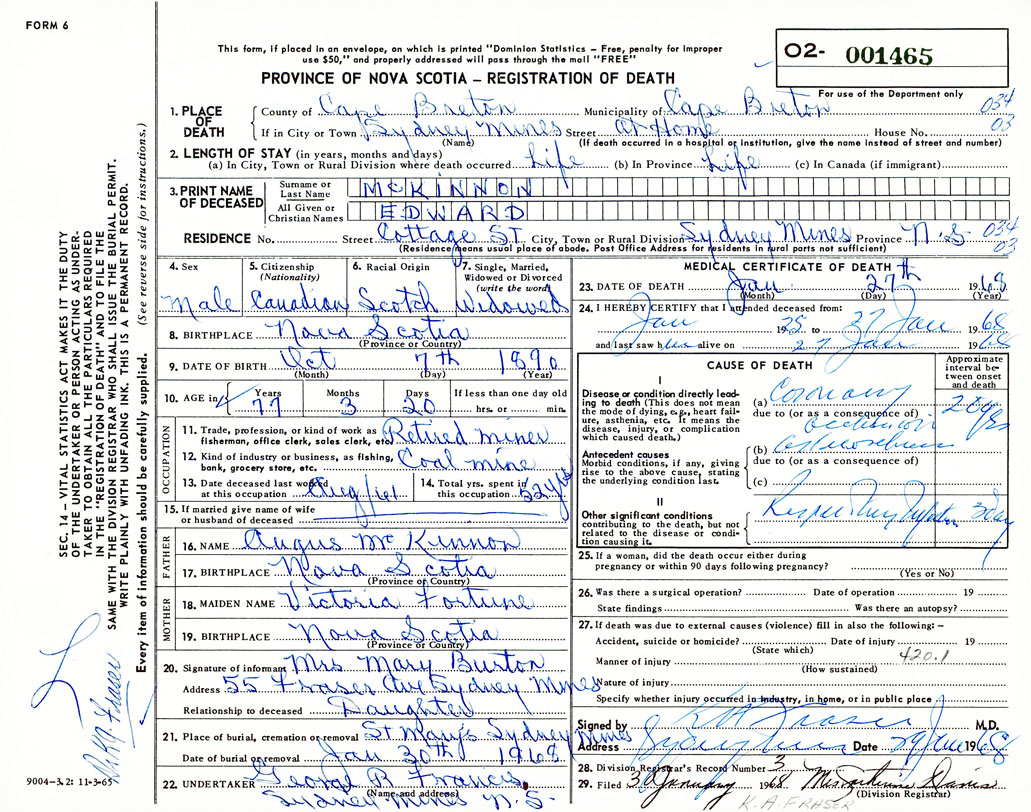 FORM 6
This form, if placed in an envelope, on which is printed "Dominion Statistics – Free, penalty for improper
use $50," and properly addressed will pass through the mail "FREE"
PROVINCE OF NOVA SCOTIA – REGISTRATION OF DEATH
02- 001465
For use of the Department only
1. PLACE OF DEATH County of Cape Breton Municipality of Cape Breton 034
If in City or Town Sydney Mines Street At Home House No. 03
(Name) (If death occurred in a hospital or institution, give the name instead of street and number)
2. LENGTH OF STAY (in years, months and days)
(a) In City, Town or Rural Division where death occurred Life (b) In Province Life (c) In Canada (if immigrant)
3. PRINT NAME OF DECEASED Surname or Last Name McKINNON
All Given or Christian Names EDWARD
RESIDENCE No. Street Cottage ST. City, Town or Rural Division Sydney Mines Province N.S 034
(Residence means usual place of abode. Post Office Address for residents in rural parts not sufficient) 03
4. Sex 5. Citizenship (Nationality) 6. Racial Origin 7. Single, Married, Widowed or Divorced (write the word)
Male Canadian Scotch Widowed
8. BIRTHPLACE Nova Scotia
(Province or Country)
9. DATE OF BIRTH Oct 7th 1890
(Month) (Day) (Year)
10. AGE in Years Months Days If less than one day old
77 3 20 hrs. or min.
OCCUPATION
11. Trade, profession, or kind of work as fisherman, office clerk, sales clerk, etc. Retired miner
12. Kind of industry or business, as fishing, bank, grocery store, etc. Coal mine
13. Date deceased last worked at this occupation Aug/61 14. Total yrs. spent in this occupation 52 yrs
15. If married give name of wife or husband of deceased
FATHER
16. NAME Angus McKinnon
17. BIRTHPLACE Nova Scotia
(Province or Country)
MOTHER
18. MAIDEN NAME Victoria Fortune
19. BIRTHPLACE Nova Scotia
(Province or Country)
20. Signature of informant Mrs Mary Burton
Address 55 Fraser Ave Sydney Mines
Relationship to deceased Daughter
21. Place of burial, cremation or removal St Mary's Sydney Mines
Date of burial or removal Jan 30th 1968
22. UNDERTAKER George B Francis
(Name and address)
Sydney Mines N.S.
MEDICAL CERTIFICATE OF DEATH
23. DATE OF DEATH Jan 27th 1968
(Month) (Day) (Year)
24. I HEREBY CERTIFY that I attended deceased from:
Jan 1935 to 27 Jan 1968
and last saw him alive on 27 Jan 1968
CAUSE OF DEATH
Approximate interval between onset and death
I
Disease or condition directly leading to death (This does not mean the mode of dying, e.g., heart failure, asthenia, etc. It means the disease, injury, or complication which caused death.)
(a) Coronary
due to (or as a consequence of)
occlusion
Antecedent causes
Morbid conditions, if any, giving rise to the above cause, stating the underlying condition last.
(b)
due to (or as a consequence of)
(c)
II
Other significant conditions
contributing to the death, but not related to the disease or condition causing it.
Respiratory 3 day
25. If a woman, did the death occur either during
pregnancy or within 90 days following pregnancy?
(Yes or No)
26. Was there a surgical operation? Date of operation 19
State findings Was there an autopsy?
27. If death was due to external causes (violence) fill in also the following: –
Accident, suicide or homicide? Date of injury 19
(State which) 420.1
Manner of injury
(How sustained)
Nature of injury
Specify whether injury occurred in industry, in home, or in public place
Signed by K A Fraser M.D.
Address Sydney Mines Date 29 1968
28. Division Registrar's Record Number 3
29. Filed 3 January 1968 Mrs Davis
(Division Registrar)
K. A. FRASER
SEC. 14 – VITAL STATISTICS ACT MAKES IT THE DUTY
OF THE UNDERTAKER OR PERSON ACTING AS UNDER-
TAKER TO OBTAIN ALL THE PARTICULARS REQUIRED
IN THE "REGISTRATION OF DEATH" AND TO FILE THE
SAME WITH THE DIVISION REGISTRAR WHO SHALL ISSUE THE BURIAL PERMIT.
WRITE PLAINLY WITH UNFADING INK. THIS IS A PERMANENT RECORD.
Every item of information should be carefully supplied. (See reverse side for instructions.)
9004-3.2: 11-3-65